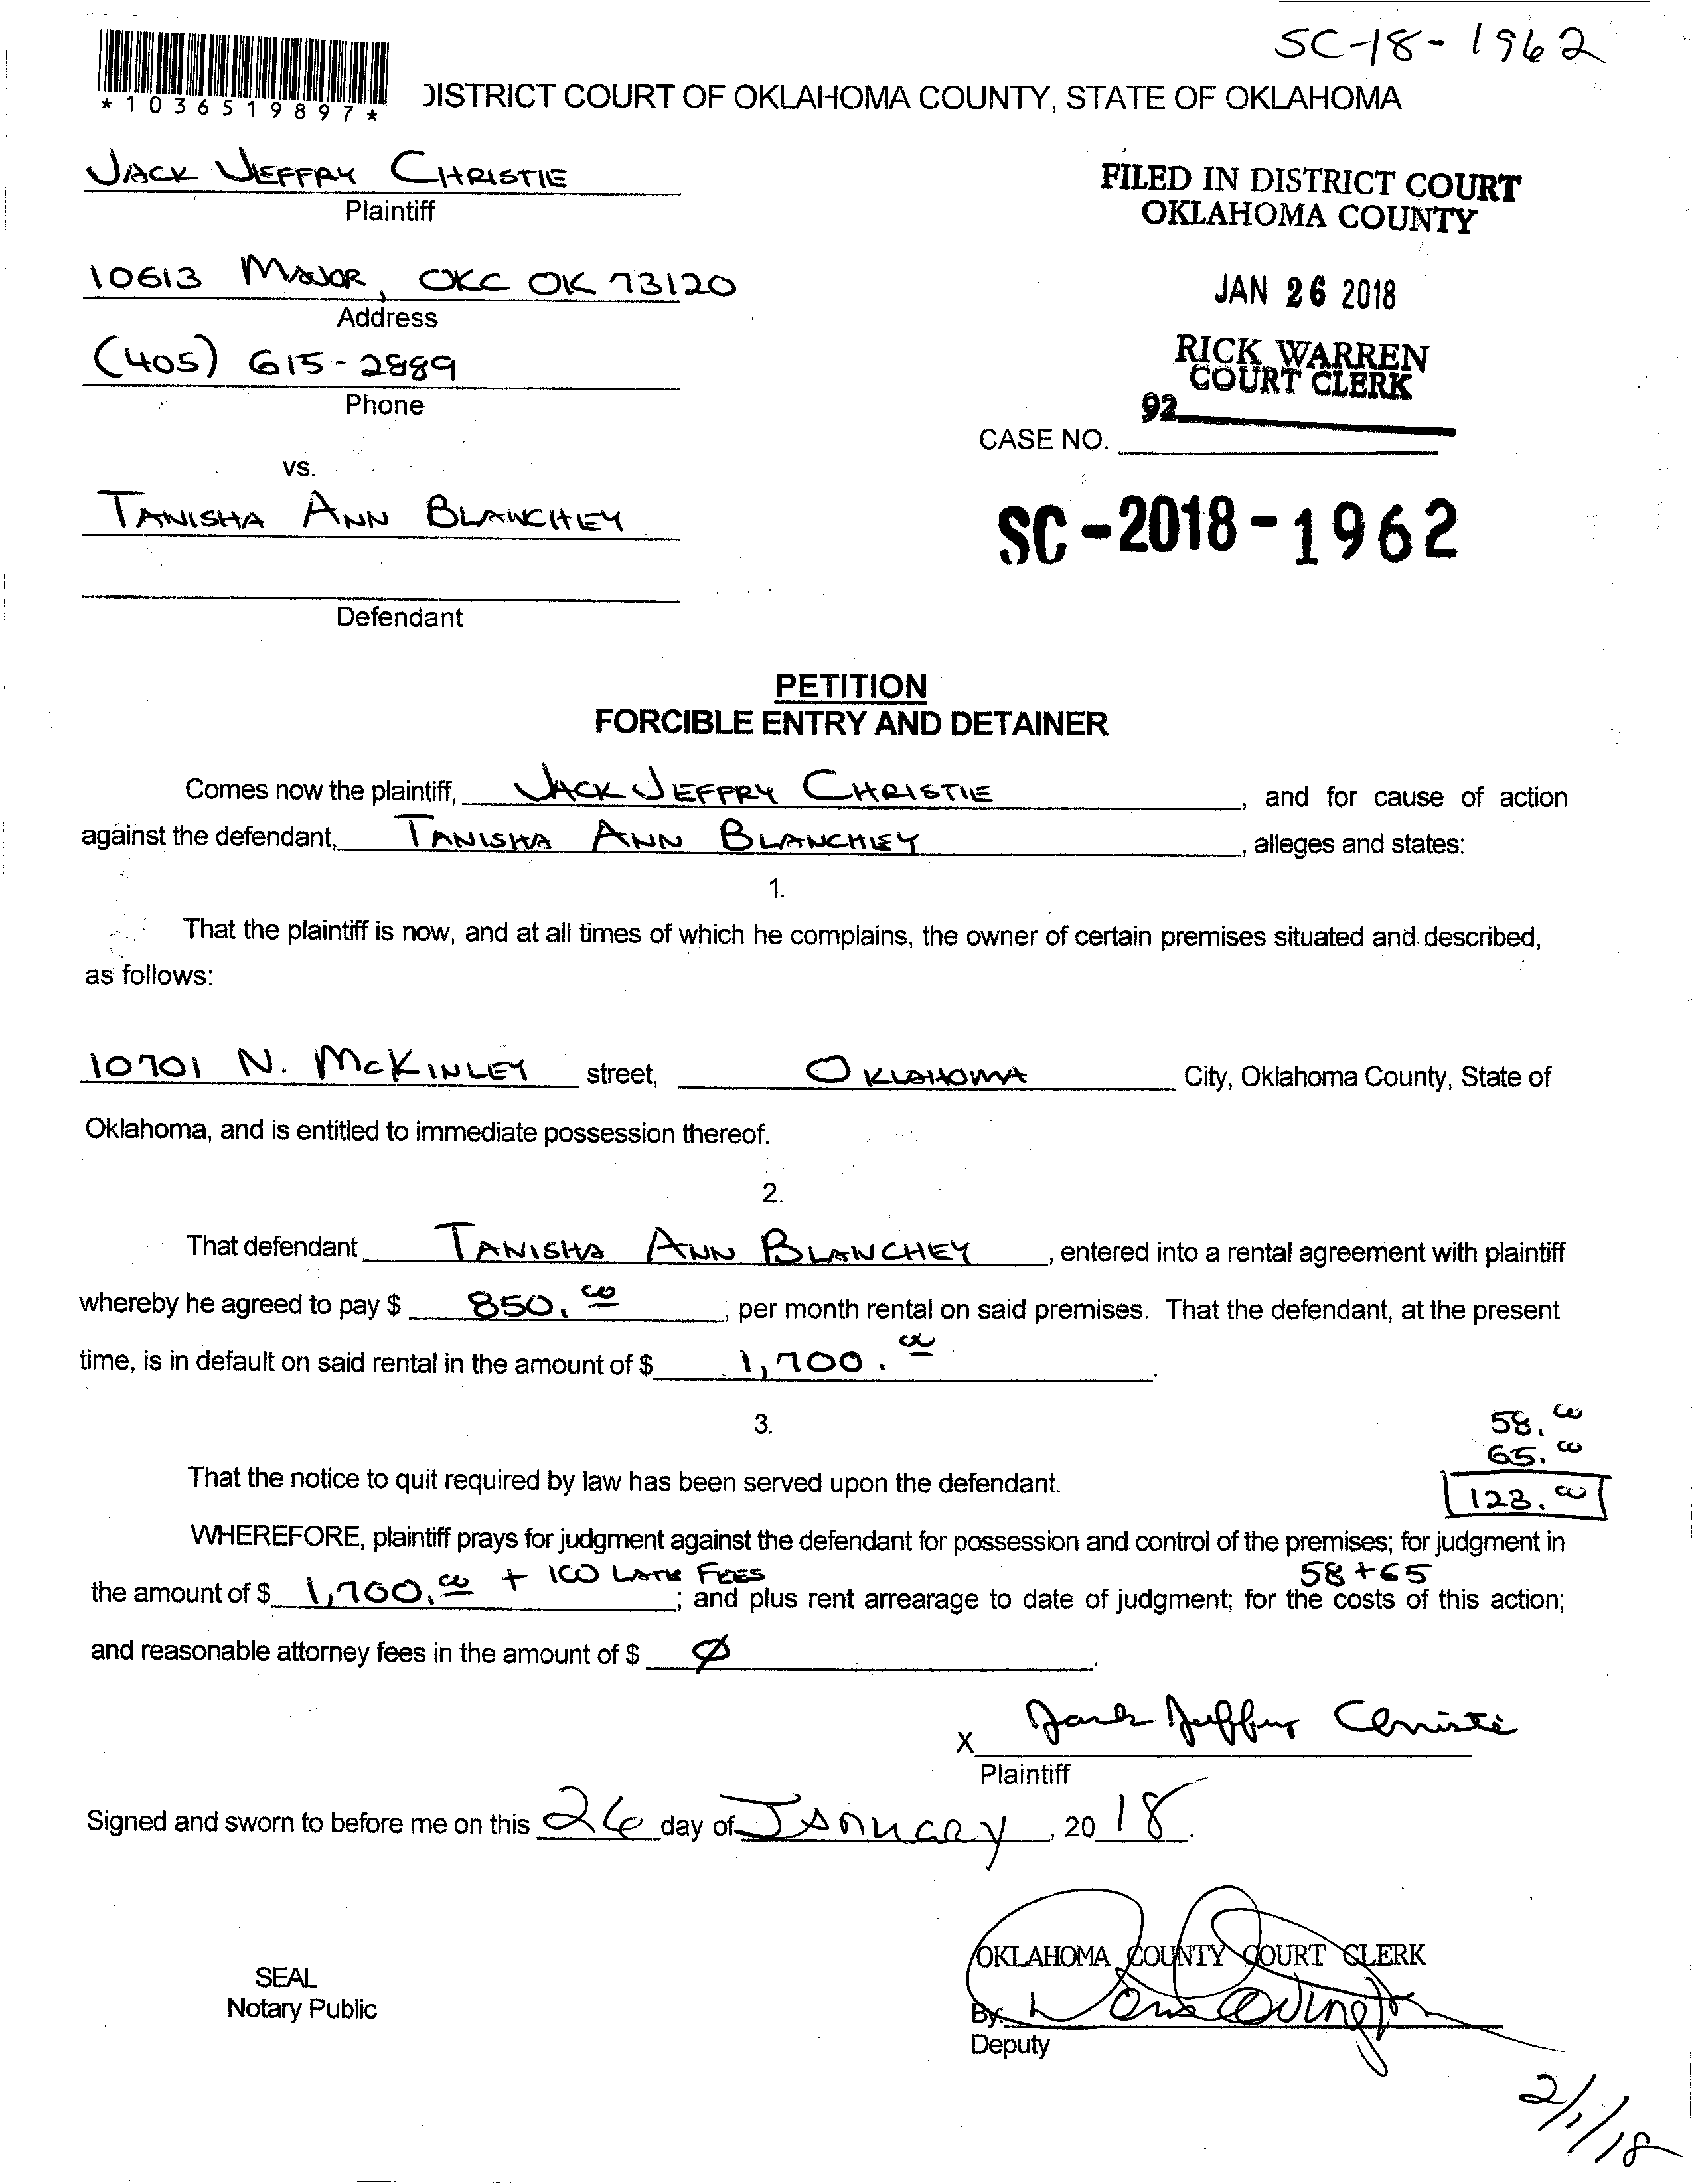 SC-18-1962
*1036519897*
DISTRICT COURT OF OKLAHOMA COUNTY, STATE OF OKLAHOMA
JACK JEFFRY CHRISTIE
Plaintiff
FILED IN DISTRICT COURT
OKLAHOMA COUNTY
10613 MAJOR, OKC OK 73120
Address
JAN 26 2018
(405) 615-2889
Phone
RICK WARREN
COURT CLERK
92
CASE NO.
vs.
TANISHA ANN BLANCHEY
SC-2018-1962
Defendant
PETITION
FORCIBLE ENTRY AND DETAINER
Comes now the plaintiff, JACK JEFFRY CHRISTIE, and for cause of action
against the defendant, TANISHA ANN BLANCHEY, alleges and states:
1.
That the plaintiff is now, and at all times of which he complains, the owner of certain premises situated and described,
as follows:
10701 N. McKINLEY street, OKLAHOMA City, Oklahoma County, State of
Oklahoma, and is entitled to immediate possession thereof.
2.
That defendant TANISHA ANN BLANCHEY, entered into a rental agreement with plaintiff
whereby he agreed to pay $ 850.00, per month rental on said premises. That the defendant, at the present
time, is in default on said rental in the amount of $ 1,700.00.
3.
58.00
65.00
123.00
That the notice to quit required by law has been served upon the defendant.
WHEREFORE, plaintiff prays for judgment against the defendant for possession and control of the premises; for judgment in
58+65
the amount of $ 1,700.00 + 100 LATE FEES; and plus rent arrearage to date of judgment; for the costs of this action;
and reasonable attorney fees in the amount of $ Ø.
X Jack Jeffry Christie
Plaintiff
Signed and sworn to before me on this 26 day of January, 2018.
OKLAHOMA COUNTY COURT CLERK
SEAL
Notary Public
By:
Deputy
2/1/18